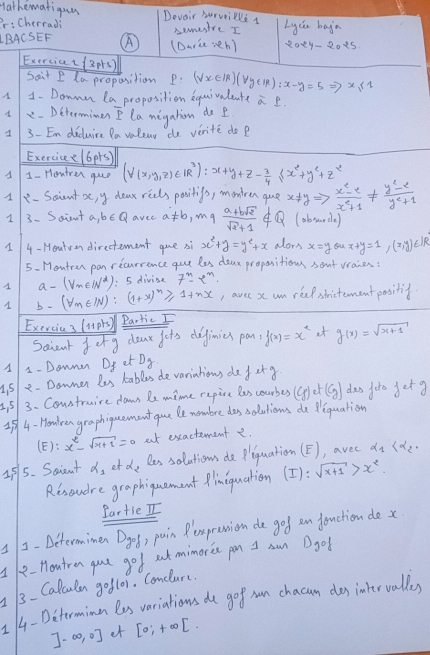 Mathématiques
Pr: Cherradi
1BACSEF
A
Devoir surveillé 1
semestre I
(Durée 2h)
Lycée
2024-2025
Exercice 1 (3pts)
Soit P la proposition P: (∀x∈ℝ)(∀y∈ℝ): x-y=5 ⇒ x≤1
1 1- Donner la proposition équivalente à P.
1 2- Déterminer P̅ la négation de P.
1 3- En déduire la valeur de vérité de P
Exercice 2 (6pts)
1 1- Montrer que (∀(x,y,z)∈ℝ³): x+y+z-3/4 ≤ x²+y²+z²
1 2- Soient x,y deux réels positifs, montrer que x≠y ⇒ (x²-2)/(x²+1) ≠ (y²-2)/(y²+1)
1 3- Soient a,b∈ℚ avec a≠b, mq (a+b√2)/(√2+1) ∉ ℚ (absurde)
1 4- Montrer directement que si x²+y=y²+x alors x=y ou x+y=1, (x,y)∈ℝ
5- Montrer par récurrence que les deux propositions sont vraies:
1 a- (∀n∈ℕ*): 5 divise 7ⁿ-2ⁿ.
1 b- (∀n∈ℕ): (1+x)ⁿ ≥ 1+nx, avec x un réel strictement positif.
Exercice 3 (11pts) Partie I
Soient f et g deux fcts définies par: f(x)=x² et g(x)=√(x+1)
1 1- Donner Df et Dg.
1,5 2- Donner les tables de variations de f et g.
1,5 3- Construire dans le même repère les courbes (Cf) et (Cg) des fcts f et g
1,5 4- Montrer graphiquement que le nombre des solutions de l'équation
(E): x²-√(x+1)=0 est exactement 2.
1,5 5- Soient α₁ et α₂ les solutions de l'équation (E), avec α₁<α₂.
Résoudre graphiquement l'inéquation (I): √(x+1) > x².
Partie II
1 1- Déterminer Dgof, puis l'expression de gof en fonction de x.
1 2- Montrer que gof est minorée par 1 sur Dgof
1 3- Calculer gof(0). Conclure.
1 4- Déterminer les variations de gof sur chacun des intervalles
]-∞,0] et [0;+∞[.